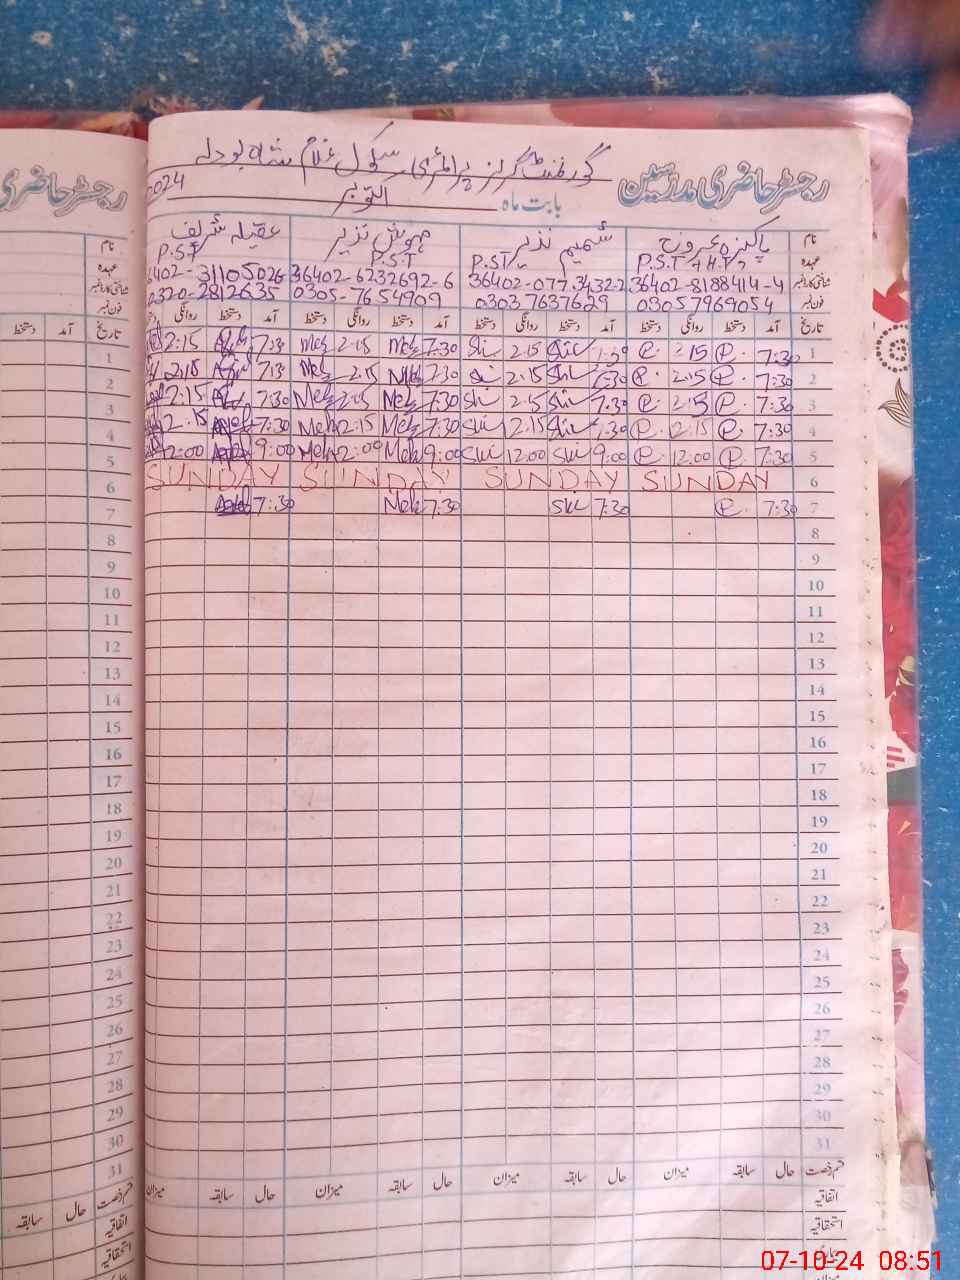 گورنمنٹ گرلز پرائمری سکول غلام شاہ بودلہ
رجسٹر حاضری مدرسین
بابت ماہ اکتوبر 2024
نام پاکیزہ عروج شمیم نذیر مہوش نذیر عقیلہ شریف
عہدہ P.S.T P.ST P.S.T P.S.T
شناختی کارڈ نمبر 36402-8188414-4 36402-6232692-6 36402-31105026
فون نمبر 03057969054 03037637629 0305-7654909 0320-2812635
تاریخ آمد دستخط روانگی دستخط آمد دستخط روانگی دستخط آمد دستخط روانگی دستخط آمد دستخط روانگی
1 7:30 P. 2:15 P. 7:30 2:15 7:30 Meh 2:15 Meh 7:30 2:15
2 7:30 P. 2:15 P. 7:30 2:15 7:30 Meh 2:15 Meh 7:30 2:15
3 7:30 P. 2:15 P. 7:30 2:15 7:30 Meh 2:15 Meh 7:30 2:15
4 7:30 P. 2:15 P. 7:30 2:15 7:30 Meh 2:15 Meh 7:30 2:15
5 7:30 P. 12:00 P. 9:00 12:00 9:00 Meh 12:00 Meh 9:00 12:00
6 SUNDAY SUNDAY SUNDAY SUNDAY
7 7:30 P. 7:30 7:30 Meh 7:30
8
9
10
11
12
13
14
15
16
17
18
19
20
21
22
23
24
25
26
27
28
29
30
31
قسم رخصت حال سابقہ میزان حال سابقہ میزان حال سابقہ میزان حال سابقہ میزان
اتفاقیہ
استحقاقیہ
بیماری
میزان
رجسٹر حاضری
نام
عہدہ
شناختی کارڈ نمبر
فون نمبر
تاریخ آمد دستخط
1
2
3
4
5
6
7
8
9
10
11
12
13
14
15
16
17
18
19
20
21
22
23
24
25
26
27
28
29
30
31
قسم رخصت حال سابقہ
اتفاقیہ
استحقاقیہ
07-10-24 08:51